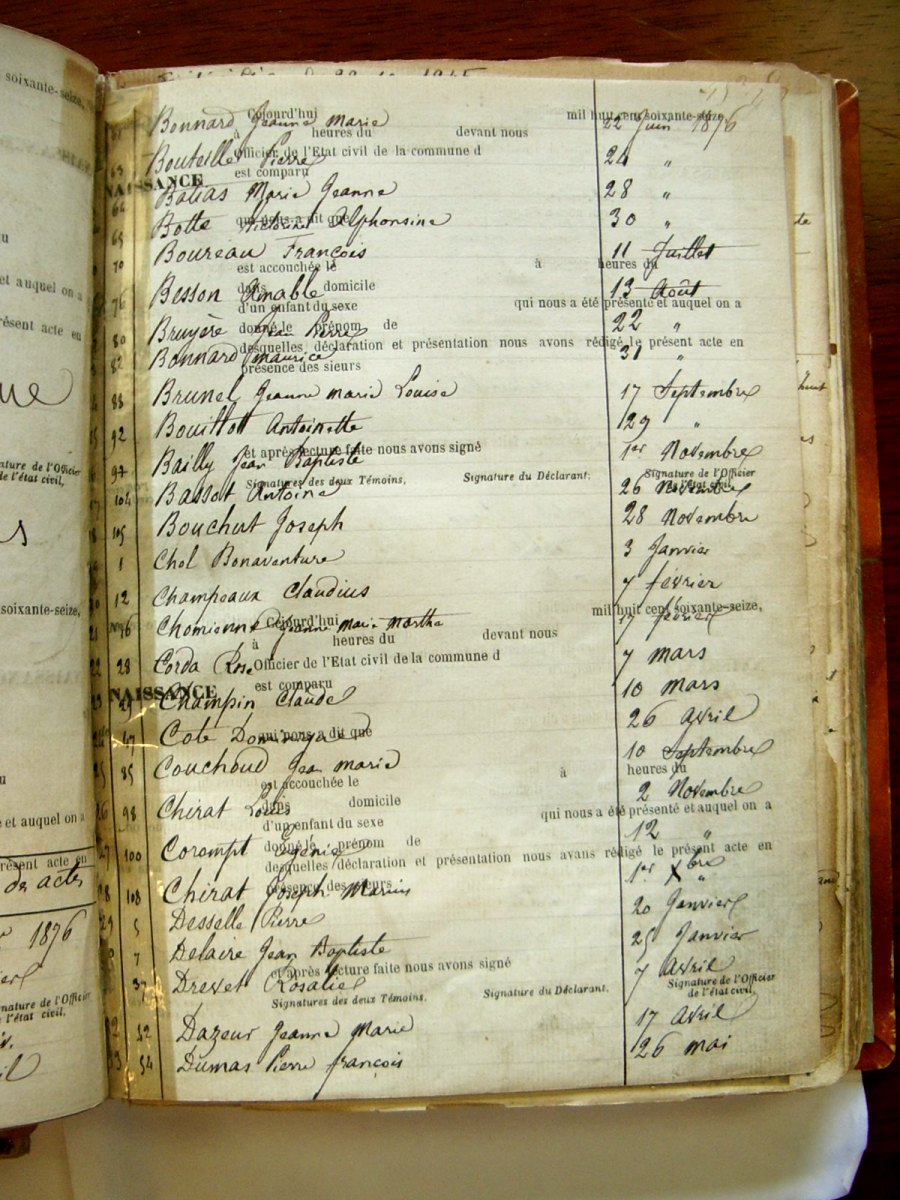 soixante-seize,
Cejourd'hui mil huit cent soixante-seize,
Bonnard Jeanne Marie 22 Juin 1876
à heures du devant nous
63 Bouteille Pierre 24 "
Officier de l'Etat civil de la commune d
est comparu
NAISSANCE
64 Batias Marie Jeanne 28 "
qui nous a dit que
65 Botte Alphonsine 30 "
70 Boureau François 11 Juillet
est accouchée le à heures du
76 Besson Amable 13 Août
dans domicile
d'un enfant du sexe qui nous a été présenté et auquel on a
80 Bruyère Jean Pierre 22 "
donné le prénom de
desquelles déclaration et présentation nous avons rédigé le présent acte en
82 Bonnard Maurice 31 "
présence des sieurs
88 Brunel Jeanne marie Louise 17 Septembre
92 Bouillott Antoinette 29 "
et après lecture faite nous avons signé
97 Bailly Jean Baptiste 1er Novembre
Signatures des deux Témoins, Signature du Déclarant. Signature de l'Officier de l'état civil,
104 Bassot Antoine 26 Novembre
105 Bouchut Joseph 28 Novembre
1 Chol Bonaventure 3 Janvier
12 Champeaux Claudius 7 février
Cejourd'hui mil huit cent soixante-seize,
16 Chomienne Jeanne Marie Martha 17 février
à heures du devant nous
28 Corda Rose 7 mars
Officier de l'Etat civil de la commune d
est comparu
NAISSANCE
29 Champin Claude 10 mars
47 Cote Dominique 26 Avril
qui nous a dit que
85 Couchoud Jean marie 10 Septembre
est accouchée le à heures du
98 Chirat Louis 2 Novembre
dans domicile
d'un enfant du sexe qui nous a été présenté et auquel on a
100 Corompt Eugénie 12 "
donné le prénom de
desquelles déclaration et présentation nous avons rédigé le présent acte en
108 Chirat Joseph Marius 1er Xbre "
présence des sieurs
5 Desselle Pierre 20 Janvier
7 Delaire Jean Baptiste 25 Janvier
et après lecture faite nous avons signé
37 Drevet Rosalie 7 Avril
Signatures des deux Témoins, Signature du Déclarant. Signature de l'Officier de l'état civil,
42 Dazeur Jeanne Marie 17 Avril
54 Dumas Pierre françois 26 mai
et auquel on a
présent acte en
de l'état civil,
soixante-seize,
et auquel on a
présent acte en
des actes
1876
de l'état civil,